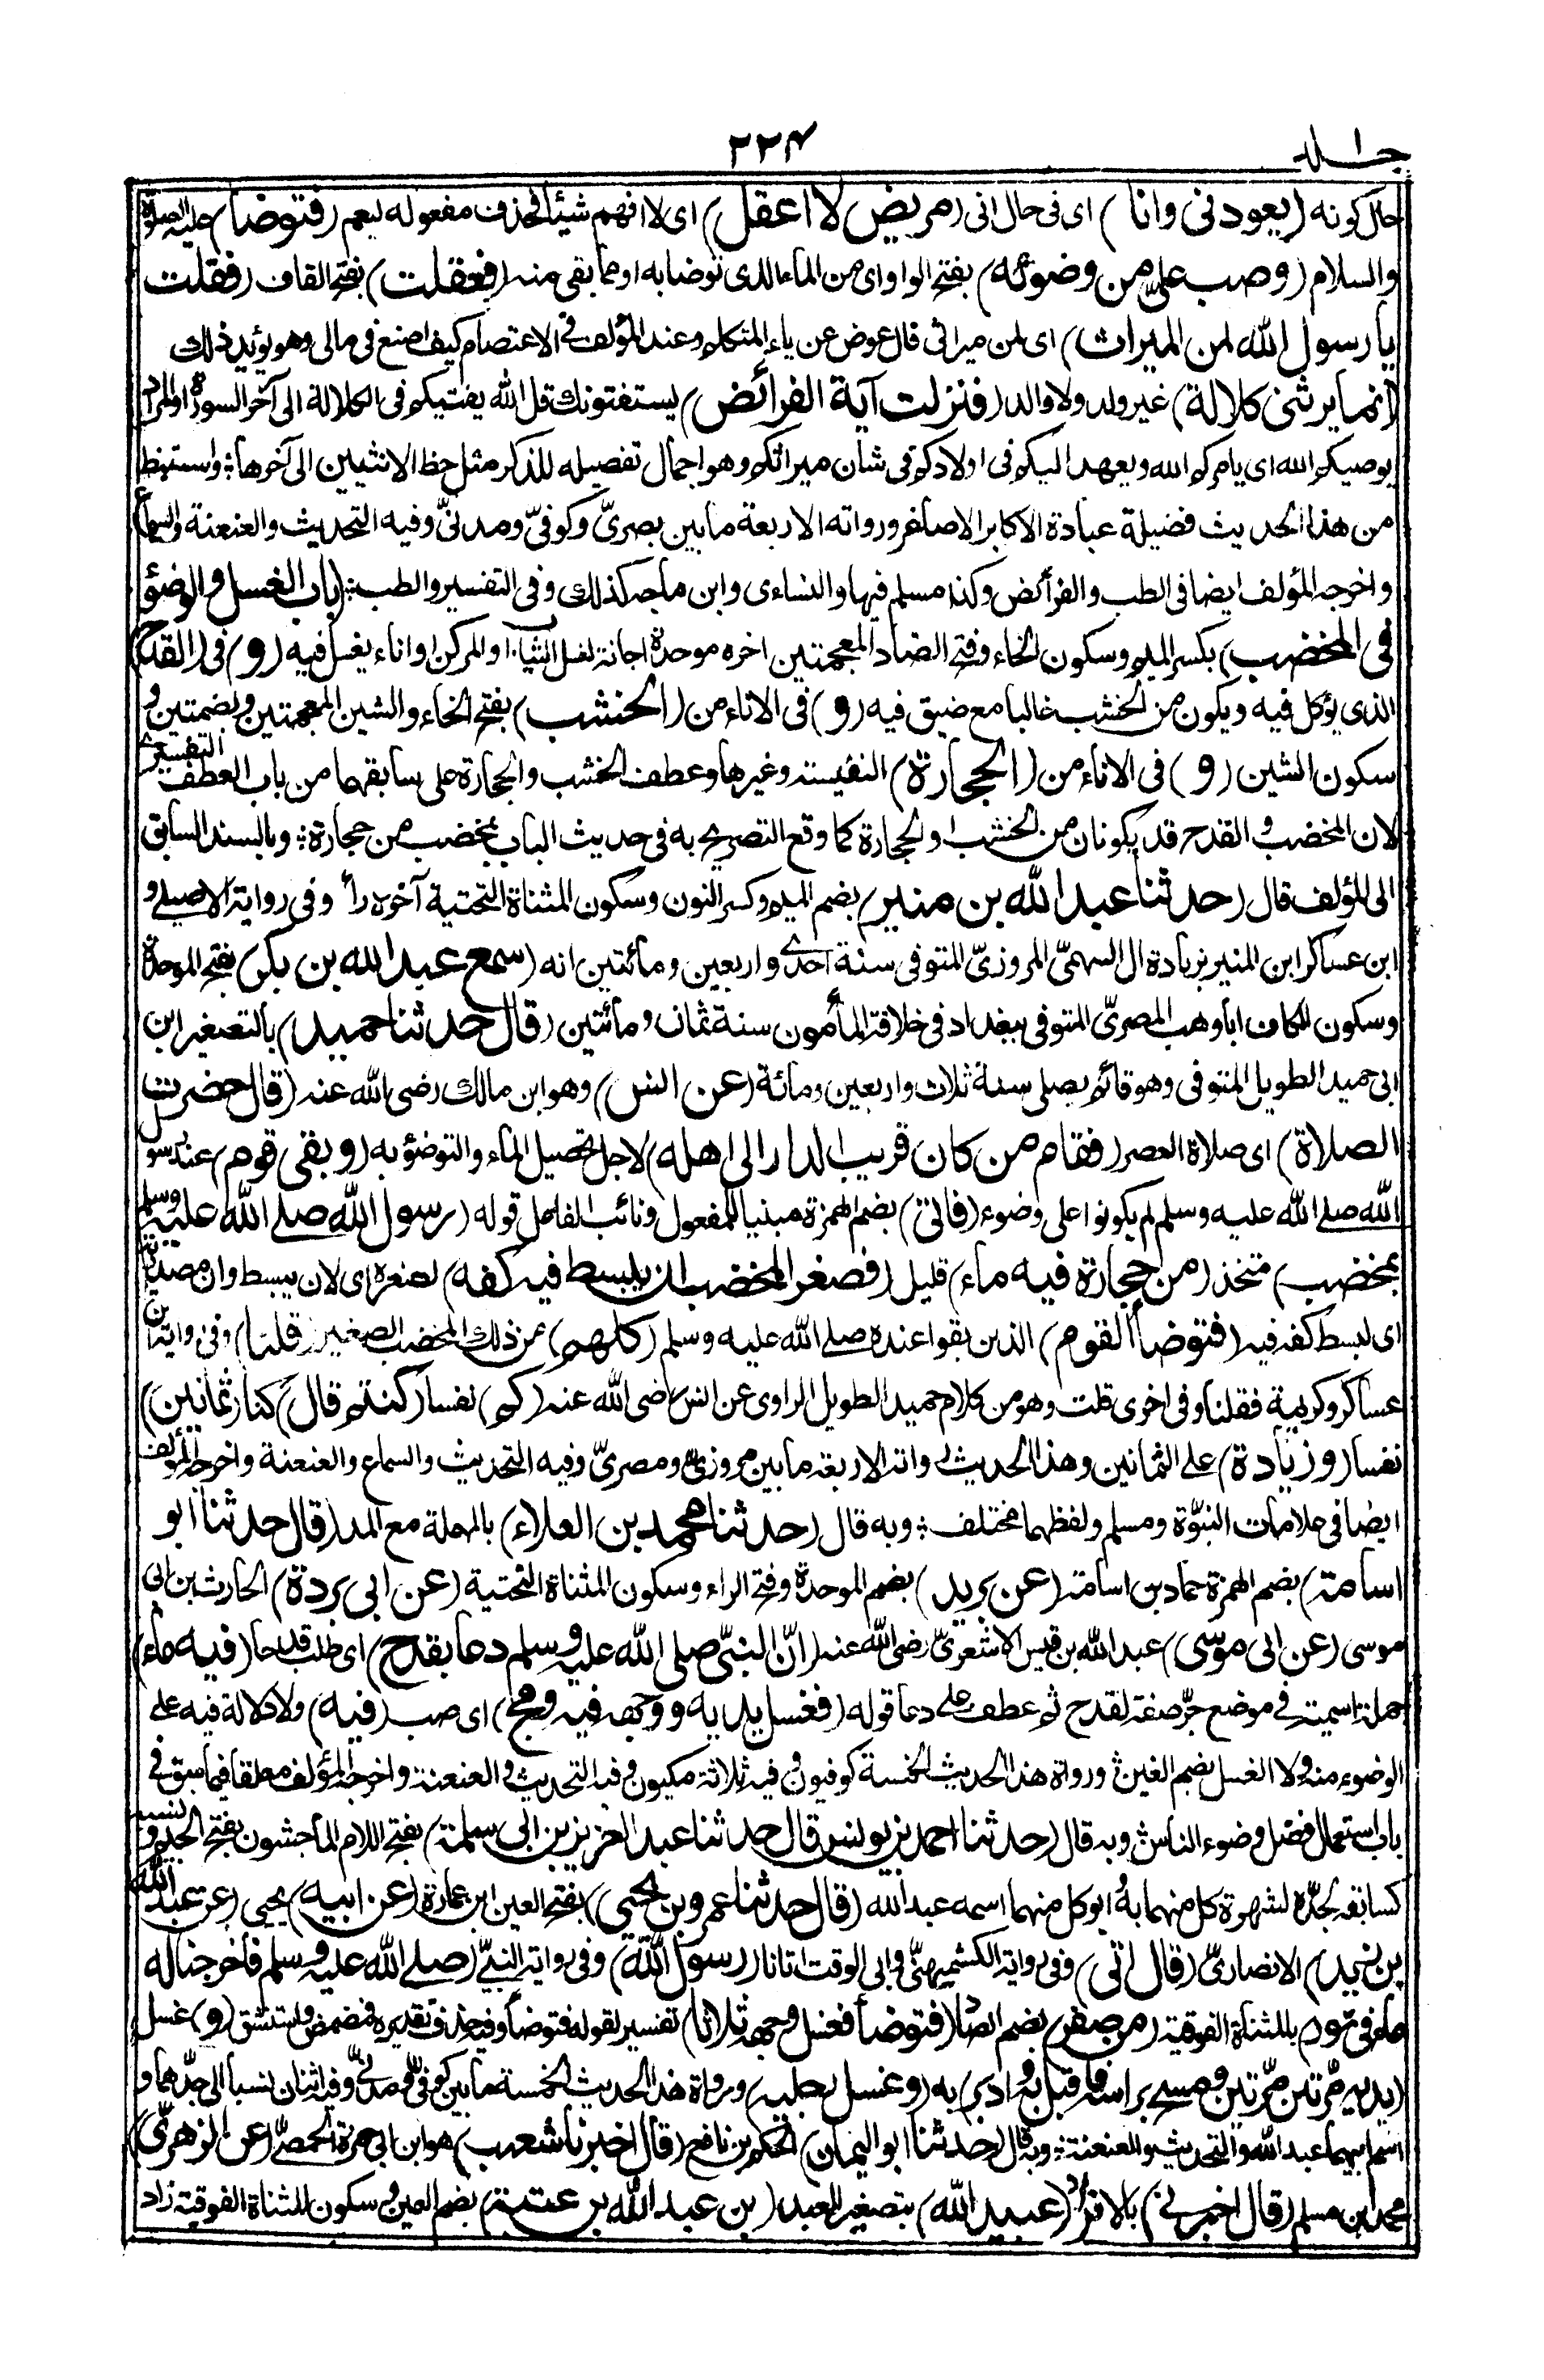 جلد ١
٢٢٤
حال كونه (يعودنى وانا) اى فى حال انى (مريض لا اعقل) اى لا افهم شيئا فحذف مفعوله ليعم (فتوضأ) عليه الصلوة
والسلام (وصب علىّ من وضوئه) بفتح الواو اى من الماء الذى توضا به او مما بقى منه (فعقلت) بفتح القاف (فقلت
يا رسول الله لمن الميراث) اى لمن ميراثى فال عوض عن ياء المتكلم وعند المؤلف فى الاعتصام كيف اصنع فى مالى وهو يؤيد ذلك
(انما يرثنى كلالة) غير ولد ولا والد (فنزلت آية الفرائض) يستفتونك قل الله يفتيكم فى الكلالة الى آخر السورة او المراد
يوصيكم الله اى يامركم الله ويعهد اليكم فى اولادكم فى شان ميراثكم وهو اجمال تفصيله للذكر مثل حظ الانثيين الى آخرها ؛ واستنبط
من هذا الحديث فضيلة عيادة الاكابر الاصاغر ورواته الاربعة ما بين بصرىّ وكوفىّ ومدنىّ وفيه التحديث والعنعنة والسماع
واخرجه المؤلف ايضا فى الطب والفرائض وكذا مسلم فيها والنساءى وابن ماجه كذلك وفى التفسير والطب ؛ (باب الغسل والوضوء
فى المخضب) بكسر الميم وسكون الخاء وفتح الضاد المعجمتين اخره موحدة اجانة لغسل الثياب او المركن او اناء يغسل فيه (و) فى (القدح)
الذى يؤكل فيه ويكون من الخشب غالبا مع ضيق فيه (و) فى الاناء من (الخشب) بفتح الخاء والشين المعجمتين وبضمتين و
سكون الشين (و) فى الاناء من (الحجارة) النفيسة وغيرها وعطف الخشب والحجارة على سابقهما من باب العطف التفسيرى
لان المخضب والقدح قد يكونان من الخشب او الحجارة كما وقع التصريح به فى حديث الباب بمخضب من حجارة ؛ وبالسند السابق
الى المؤلف قال (حدثنا عبد الله بن منير) بضم الميم وكسر النون وسكون المثناة التحتية آخره راء وفى رواية الاصيلى و
ابن عساكر ابن المنير بزيادة ال السهمىّ المروزىّ المتوفى سنة احدى واربعين ومائتين انه (سمع عبد الله بن بكر) بفتح الموحدة
وسكون الكاف ابا وهب المصرىّ المتوفى ببغداد فى خلافة المأمون سنة ثمان ومائتين (قال حدثنا حميد) بالتصغير ابن
ابى حميد الطويل المتوفى وهو قائم يصلى سنة ثلاث واربعين ومائة (عن انس) وهو ابن مالك رضى الله عنه (قال حضرت
الصلاة) اى صلاة العصر (فقام من كان قريب الدار الى اهله) لاجل تحصيل الماء والتوضؤ به (وبقى قوم) عند رسول
الله صلى الله عليه وسلم لم يكونوا على وضوء (فاتى) بضم الهمزة مبنيا للمفعول ونائب الفاعل قوله (رسول الله صلى الله عليه وسلم
بمخضب) متخذ (من حجارة فيه ماء) قليل (فصغر المخضب ان يبسط فيه كفه) لصغره اى لان يبسط وان مصدرية
اى لبسط كفه فيه (فتوضأ القوم) الذين بقوا عنده صلى الله عليه وسلم (كلهم) من ذلك المخضب الصغير (قلنا) وفى رواية ابن
عساكر وكريمة فقلنا وفى اخرى قلت وهو من كلام حميد الطويل الراوى عن انس رضى الله عنه (كم) نفسا (كنتم قال) كنا (ثمانين)
نفسا (وزيادة) على الثمانين وهذا الحديث رواته الاربعة ما بين مروزىّ ومصرىّ وفيه التحديث والسماع والعنعنة واخرجه المؤلف
ايضا فى علامات النبوّة ومسلم ولفظهما مختلف ؛ وبه قال (حدثنا محمد بن العلاء) بالمهملة مع المد (قال حدثنا ابو
اسامة) بضم الهمزة حماد بن اسامة (عن بريد) بضم الموحدة وفتح الراء وسكون المثناة التحتية (عن ابى بردة) الحارث بن ابى
موسى (عن ابى موسى) عبد الله بن قيس الاشعرىّ رضى الله عنه (انّ النبىّ صلى الله عليه وسلم دعا بقدح) اى طلب قدحا (فيه ماء)
جملة اسمية فى موضع جرّ صفة لقدح ثم عطف على دعا قوله (فغسل يديه ووجهه فيه ومج) اى صب (فيه) ولا دلالة فيه على
الوضوء منه ولا الغسل بضم الغين ؛ ورواة هذا الحديث الخمسة كوفيون وفيه ثلاثة مكيون وفيه التحديث والعنعنة واخرجه المؤلف معلقا فيما سبق فى
باب استعمال فضل وضوء الناس ؛ وبه قال (حدثنا احمد بن يونس قال حدثنا عبد العزيز بن ابى سلمة) بفتح اللام الماجشون بفتح الجيم ونسب
كسابقه لجدّه لشهرة كل منهما به ابو كل منهما اسمه عبد الله (قال حدثنا عمرو بن يحيى) بفتح العين ابن عمارة (عن ابيه) يحيى (عن عبد الله
بن زيد) الانصارىّ (قال اتى) وفى رواية الكشميهنىّ وابى الوقت اتانا (رسول الله) وفى رواية النبىّ (صلى الله عليه وسلم فاخرجنا له
ماء فى تور) بالمثناة الفوقية (من صفر) بضم الصاد (فتوضأ فغسل وجهه ثلاثا) تفسير لقوله فتوضأ وفيه حذف تقديره فمضمض واستنشق (و) غسل
(يديه مرّتين مرّتين ومسح براسه فاقبل به وادبر) به (وغسل رجليه) ورواة هذا الحديث الخمسة ما بين كوفىّ ومدنىّ وفيه اثنان نسبا الى جدّهما و
اسم ابيهما عبد الله والتحديث والعنعنة ؛ وبه قال (حدثنا ابو اليمان) الحكم بن نافع (قال اخبرنا شعيب) هو ابن ابى حمزة الحمصىّ (عن الزهرىّ)
محمد بن مسلم (قال اخبرنى) بالافراد (عبيد الله) بتصغير العبد (بن عبد الله بن عتبة) بضم العين وسكون المثناة الفوقية زاد